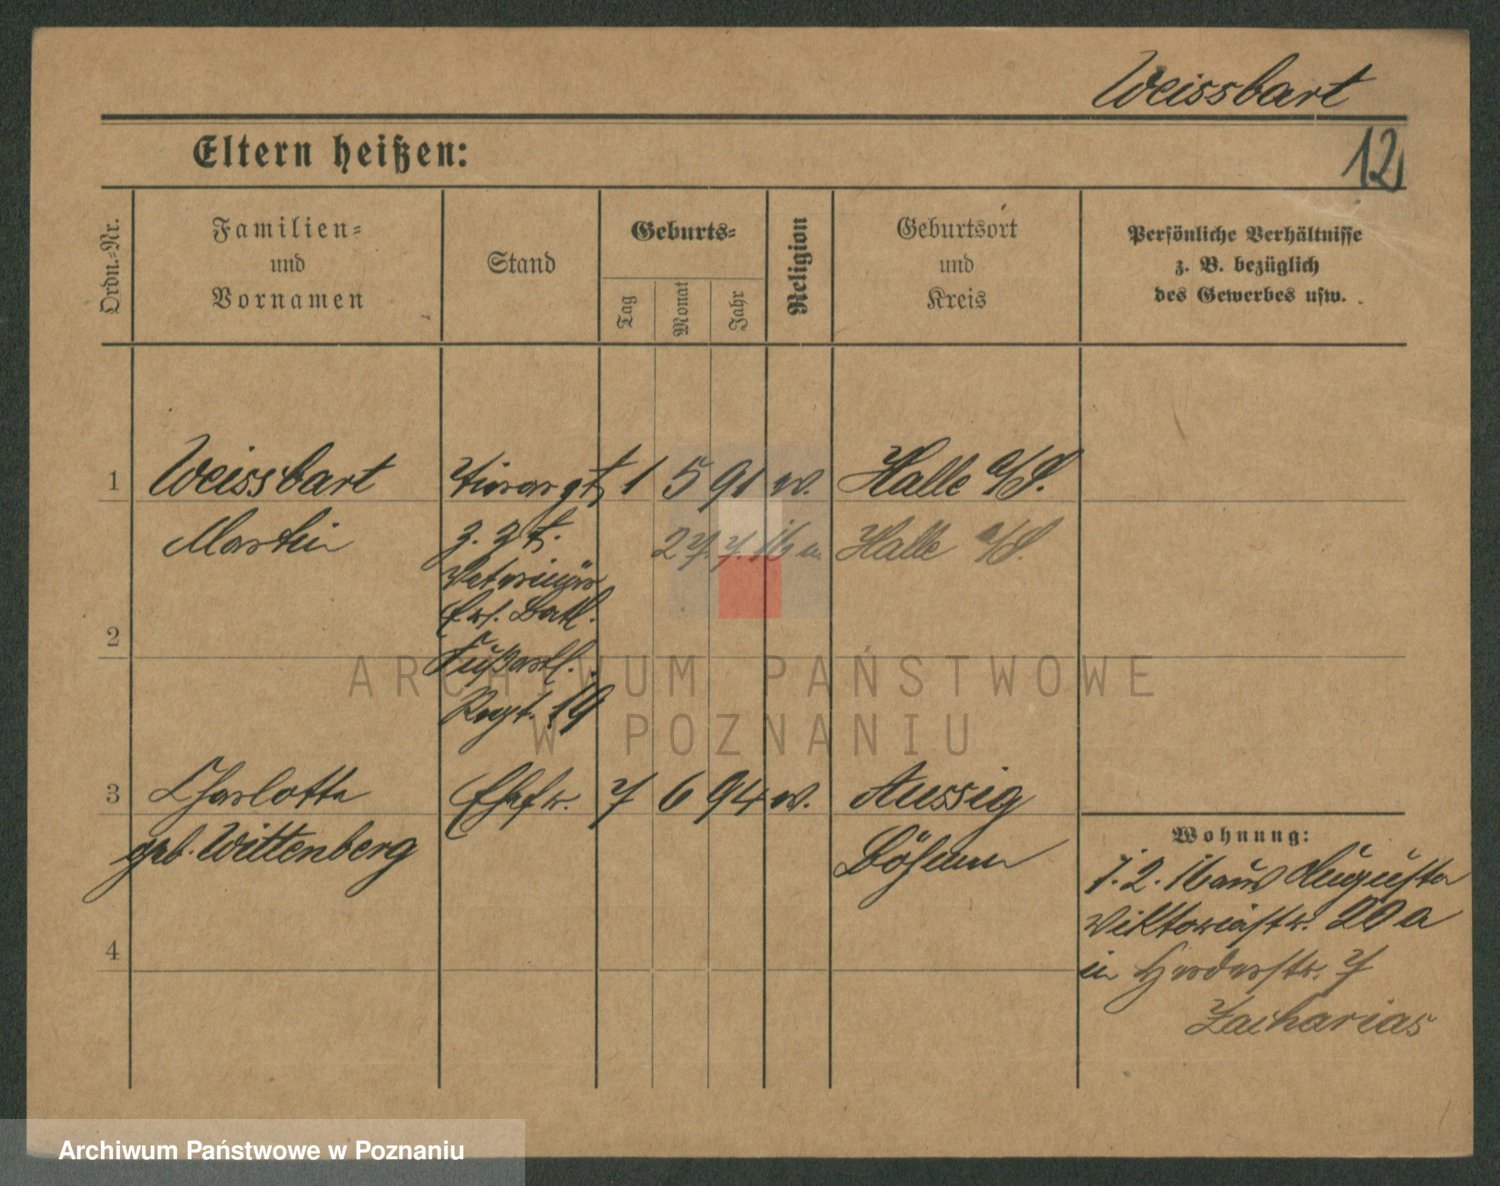 Weissbart
12
Eltern heißen:
Ordn.-Nr.
Familien-
und
Vornamen
Stand
Geburts-
Tag
Monat
Jahr
Religion
Geburtsort
und
Kreis
Persönliche Verhältnisse
z. B. bezüglich
des Gewerbes usw.
1 Weissbart Tierarzt 1 5 91 Halle a/S.
Martin z. Zt. 27. 7. 16 Halle a/S.
Veterinär
Ers. Batl.
2
Fußartl.
Regt. 19
3 Charlotte Ehefr. 7 6 94 Aussig
geb. Wittenberg Böhmen
4
Wohnung:
1. 2. 16 aus Augusta
Viktoriastr. 20 a
in Herderstr. 7
Zacharias
ARCHIWUM PAŃSTWOWE
W POZNANIU
Archiwum Państwowe w Poznaniu